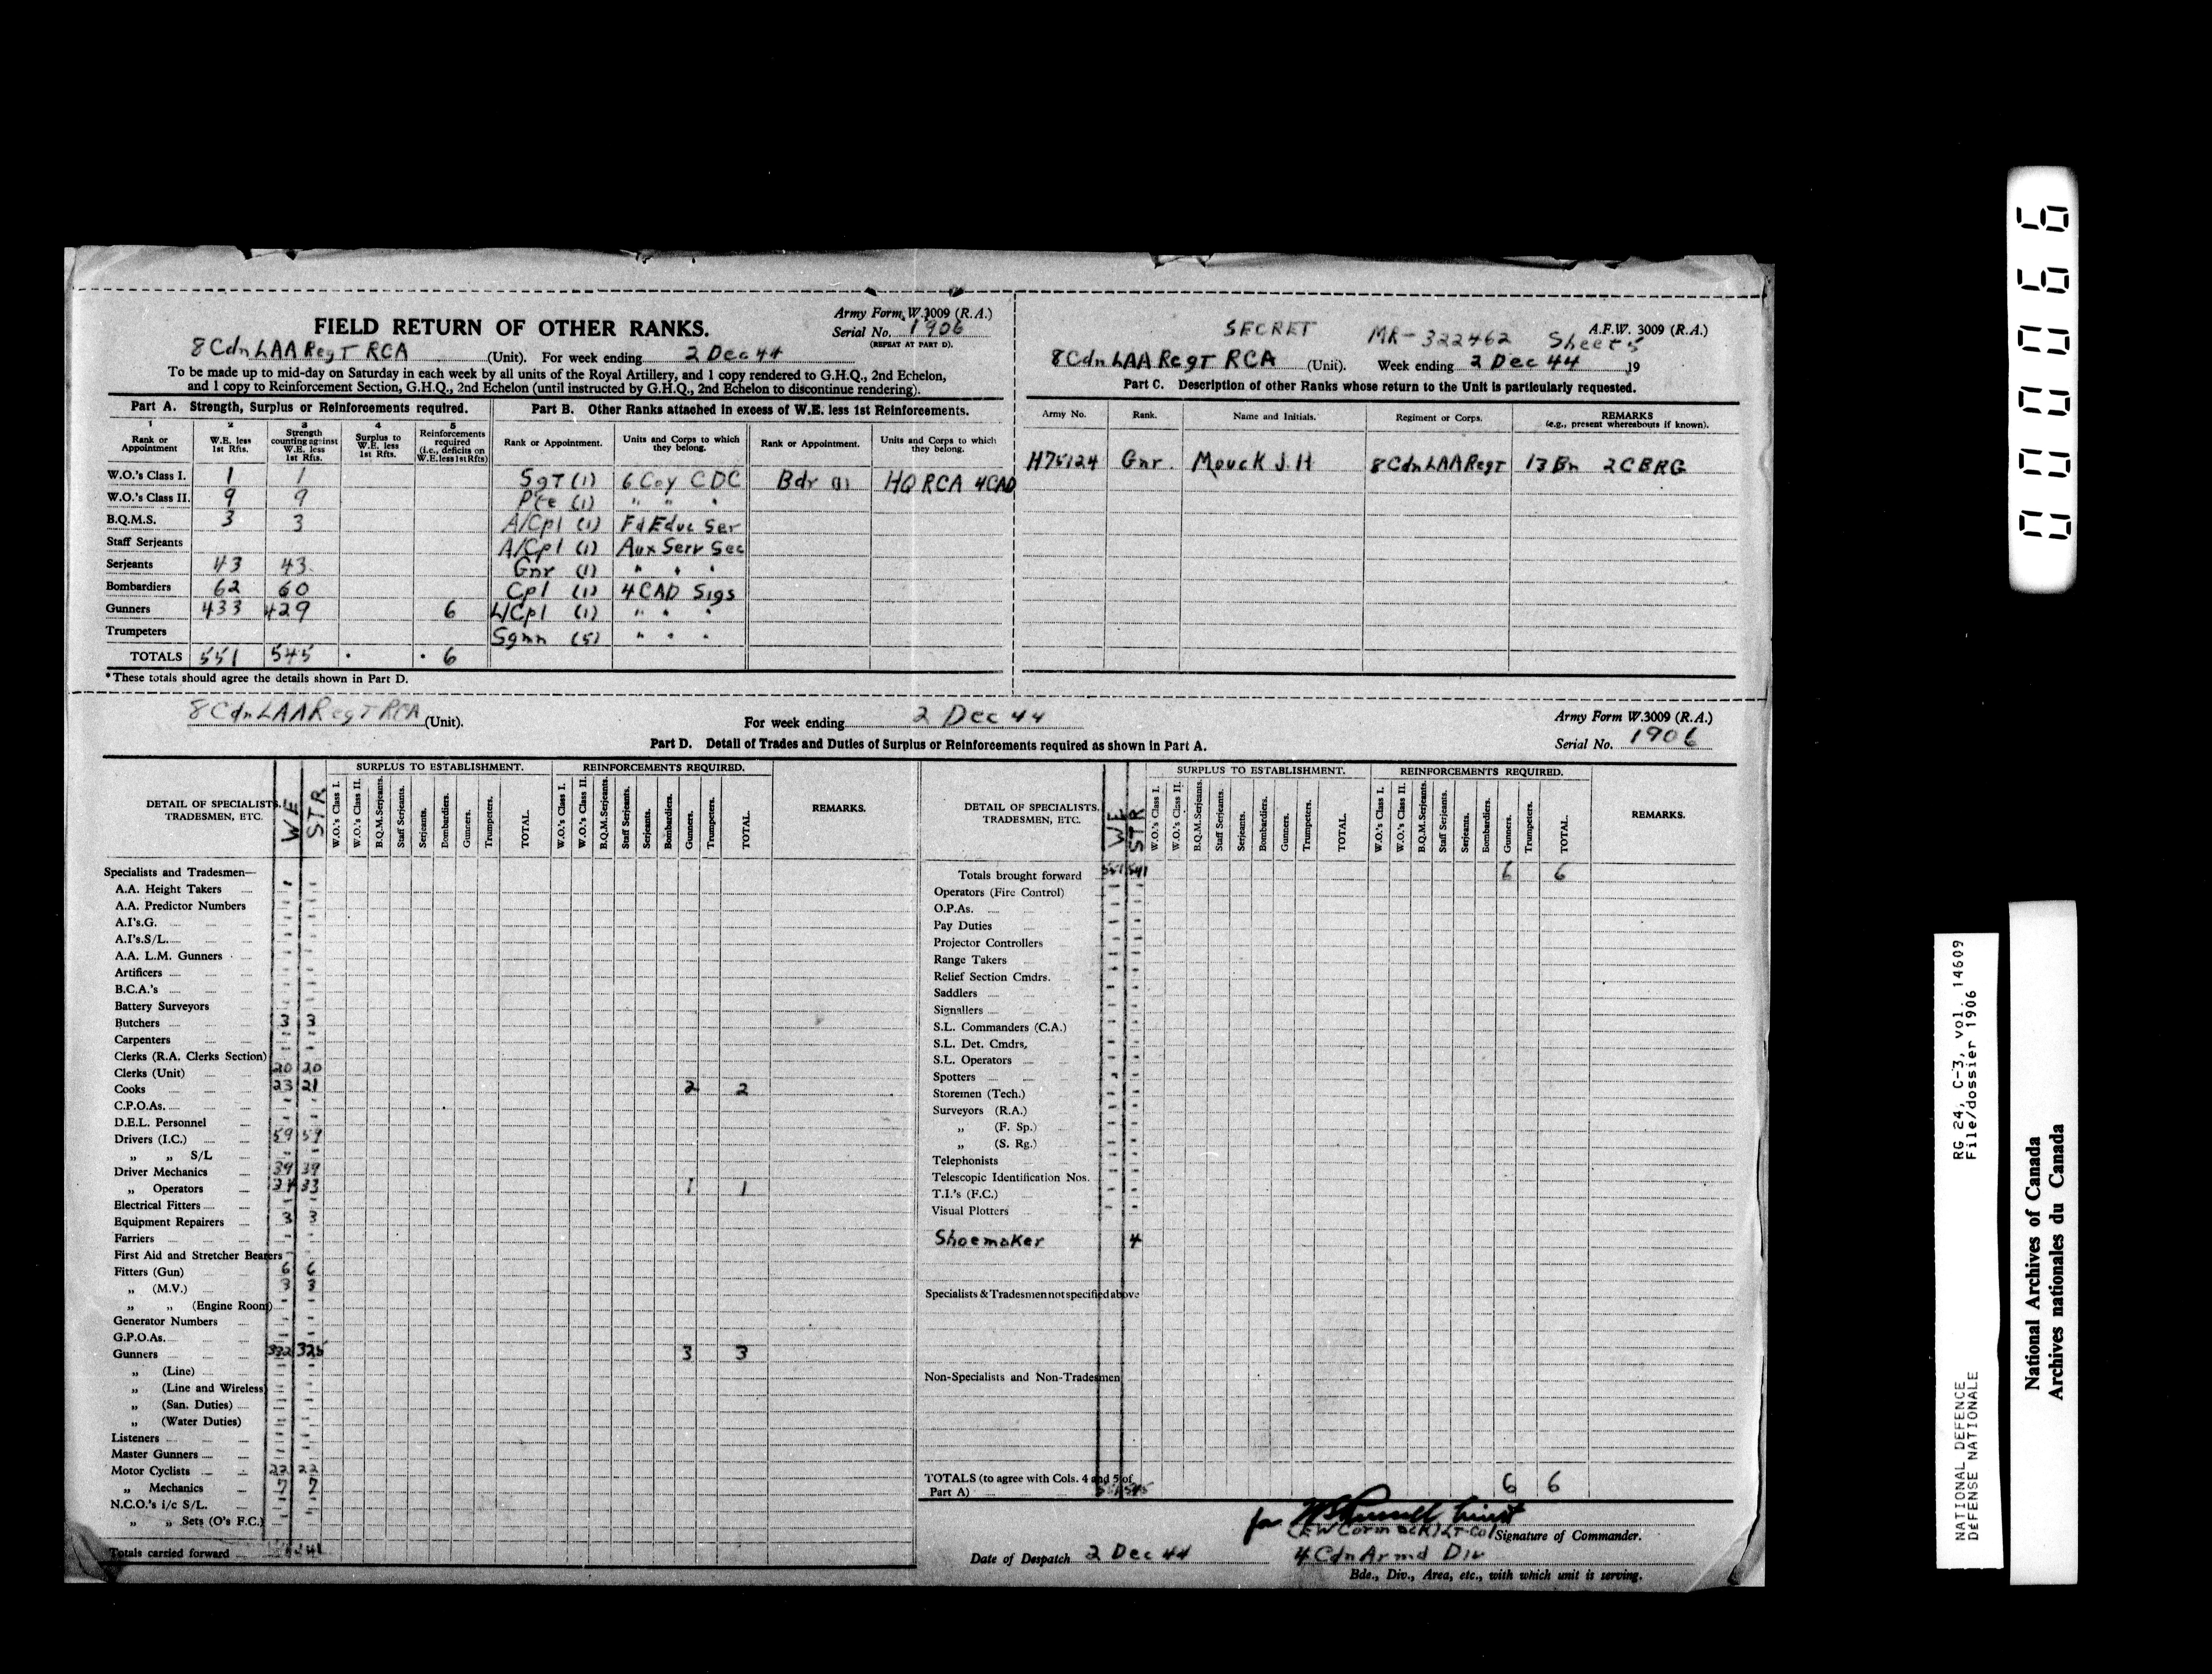 FIELD RETURN OF OTHER RANKS.
Army Form W.3009 (R.A.)
Serial No. 1906
(REPEAT AT PART D).
8 Cdn LAA RegT RCA (Unit). For week ending 2 Dec 44
To be made up to mid-day on Saturday in each week by all units of the Royal Artillery, and 1 copy rendered to G.H.Q., 2nd Echelon,
and 1 copy to Reinforcement Section, G.H.Q., 2nd Echelon (until instructed by G.H.Q., 2nd Echelon to discontinue rendering).
Part A. Strength, Surplus or Reinforcements required.
1 2 3 4 5
Rank or Appointment
W.E. less 1st Rfts.
Strength counting against W.E. less 1st Rfts.
Surplus to W.E. less 1st Rfts.
Reinforcements required (i.e., deficits on W.E. less 1st Rfts)
W.O.'s Class I. 1 1
W.O.'s Class II. 9 9
B.Q.M.S. 3 3
Staff Serjeants
Serjeants 43 43
Bombardiers 62 60
Gunners 433 429 6
Trumpeters
TOTALS 551 545 6
*These totals should agree the details shown in Part D.
Part B. Other Ranks attached in excess of W.E. less 1st Reinforcements.
Rank or Appointment. Units and Corps to which they belong. Rank or Appointment. Units and Corps to which they belong.
SgT (1) 6 Coy CDC Bdr (1) HQ RCA 4 CAD
Pte (1) " " "
A/Cpl (1) Fd Educ Ser
A/Cpl (1) Aux Serv Sec
Gnr (1) " " "
Cpl (1) 4 CAD Sigs
L/Cpl (1) " " "
Sgmn (5) " " "
SECRET
MR-322462 Sheet 5
A.F.W. 3009 (R.A.)
8 Cdn LAA RegT RCA (Unit). Week ending 2 Dec 44 19
Part C. Description of other Ranks whose return to the Unit is particularly requested.
Army No. Rank. Name and Initials. Regiment or Corps. REMARKS
(e.g., present whereabouts if known).
H75124 Gnr. Mouck J.H 8 Cdn LAA RegT 13 Bn 2 CBRG
8 Cdn LAA RegT RCA (Unit). For week ending 2 Dec 44
Army Form W.3009 (R.A.)
Serial No. 1906
Part D. Detail of Trades and Duties of Surplus or Reinforcements required as shown in Part A.
DETAIL OF SPECIALISTS, TRADESMEN, ETC.
WE
STR
SURPLUS TO ESTABLISHMENT.
W.O.'s Class I.
W.O.'s Class II.
B.Q.M.Serjeants.
Staff Serjeants.
Serjeants.
Bombardiers.
Gunners.
Trumpeters.
TOTAL.
REINFORCEMENTS REQUIRED.
W.O.'s Class I.
W.O.'s Class II.
B.Q.M.Serjeants.
Staff Serjeants.
Serjeants.
Bombardiers.
Gunners.
Trumpeters.
TOTAL.
REMARKS.
Specialists and Tradesmen—
A.A. Height Takers - -
A.A. Predictor Numbers - -
A.I's.G. - -
A.I's.S/L. - -
A.A. L.M. Gunners - -
Artificers - -
B.C.A.'s - -
Battery Surveyors - -
Butchers 3 3
Carpenters - -
Clerks (R.A. Clerks Section) - -
Clerks (Unit) 20 20
Cooks 23 21 2 2
C.P.O.As. - -
D.E.L. Personnel - -
Drivers (I.C.) 59 59
„ „ S/L - -
Driver Mechanics 39 39
„ Operators 34 33 1 1
Electrical Fitters - -
Equipment Repairers 3 3
Farriers - -
First Aid and Stretcher Bearers - -
Fitters (Gun) 6 6
„ (M.V.) 3 3
„ „ (Engine Room) - -
Generator Numbers - -
G.P.O.As. - -
Gunners 332 325 3 3
„ (Line) - -
„ (Line and Wireless) - -
„ (San. Duties) - -
„ (Water Duties) - -
Listeners - -
Master Gunners - -
Motor Cyclists 22 22
„ Mechanics 7 7
N.C.O.'s i/c S/L. - -
„ „ Sets (O's F.C.) - -
Totals carried forward
DETAIL OF SPECIALISTS, TRADESMEN, ETC.
WE
STR
SURPLUS TO ESTABLISHMENT.
W.O.'s Class I.
W.O.'s Class II.
B.Q.M.Serjeants.
Staff Serjeants.
Serjeants.
Bombardiers.
Gunners.
Trumpeters.
TOTAL.
REINFORCEMENTS REQUIRED.
W.O.'s Class I.
W.O.'s Class II.
B.Q.M.Serjeants.
Staff Serjeants.
Serjeants.
Bombardiers.
Gunners.
Trumpeters.
TOTAL.
REMARKS.
Totals brought forward 551 541 6 6
Operators (Fire Control) - -
O.P.As. - -
Pay Duties - -
Projector Controllers - -
Range Takers - -
Relief Section Cmdrs. - -
Saddlers - -
Signallers - -
S.L. Commanders (C.A.) - -
S.L. Det. Cmdrs, - -
S.L. Operators - -
Spotters - -
Storemen (Tech.) - -
Surveyors (R.A.) - -
„ (F. Sp.) - -
„ (S. Rg.) - -
Telephonists - -
Telescopic Identification Nos. - -
T.I.'s (F.C.) - -
Visual Plotters - -
Shoemaker 4
Specialists & Tradesmen not specified above
Non-Specialists and Non-Tradesmen
TOTALS (to agree with Cols. 4 and 5 of
Part A) 551 545 6 6
for
(EW Cormack) LT-Col Signature of Commander.
Date of Despatch 2 Dec 44 4 Cdn Armd Div
Bde., Div., Area, etc., with which unit is serving.
000066
NATIONAL DEFENCE RG 24, C-3, vol. 14609
DÉFENSE NATIONALE File/dossier 1906
National Archives of Canada
Archives nationales du Canada